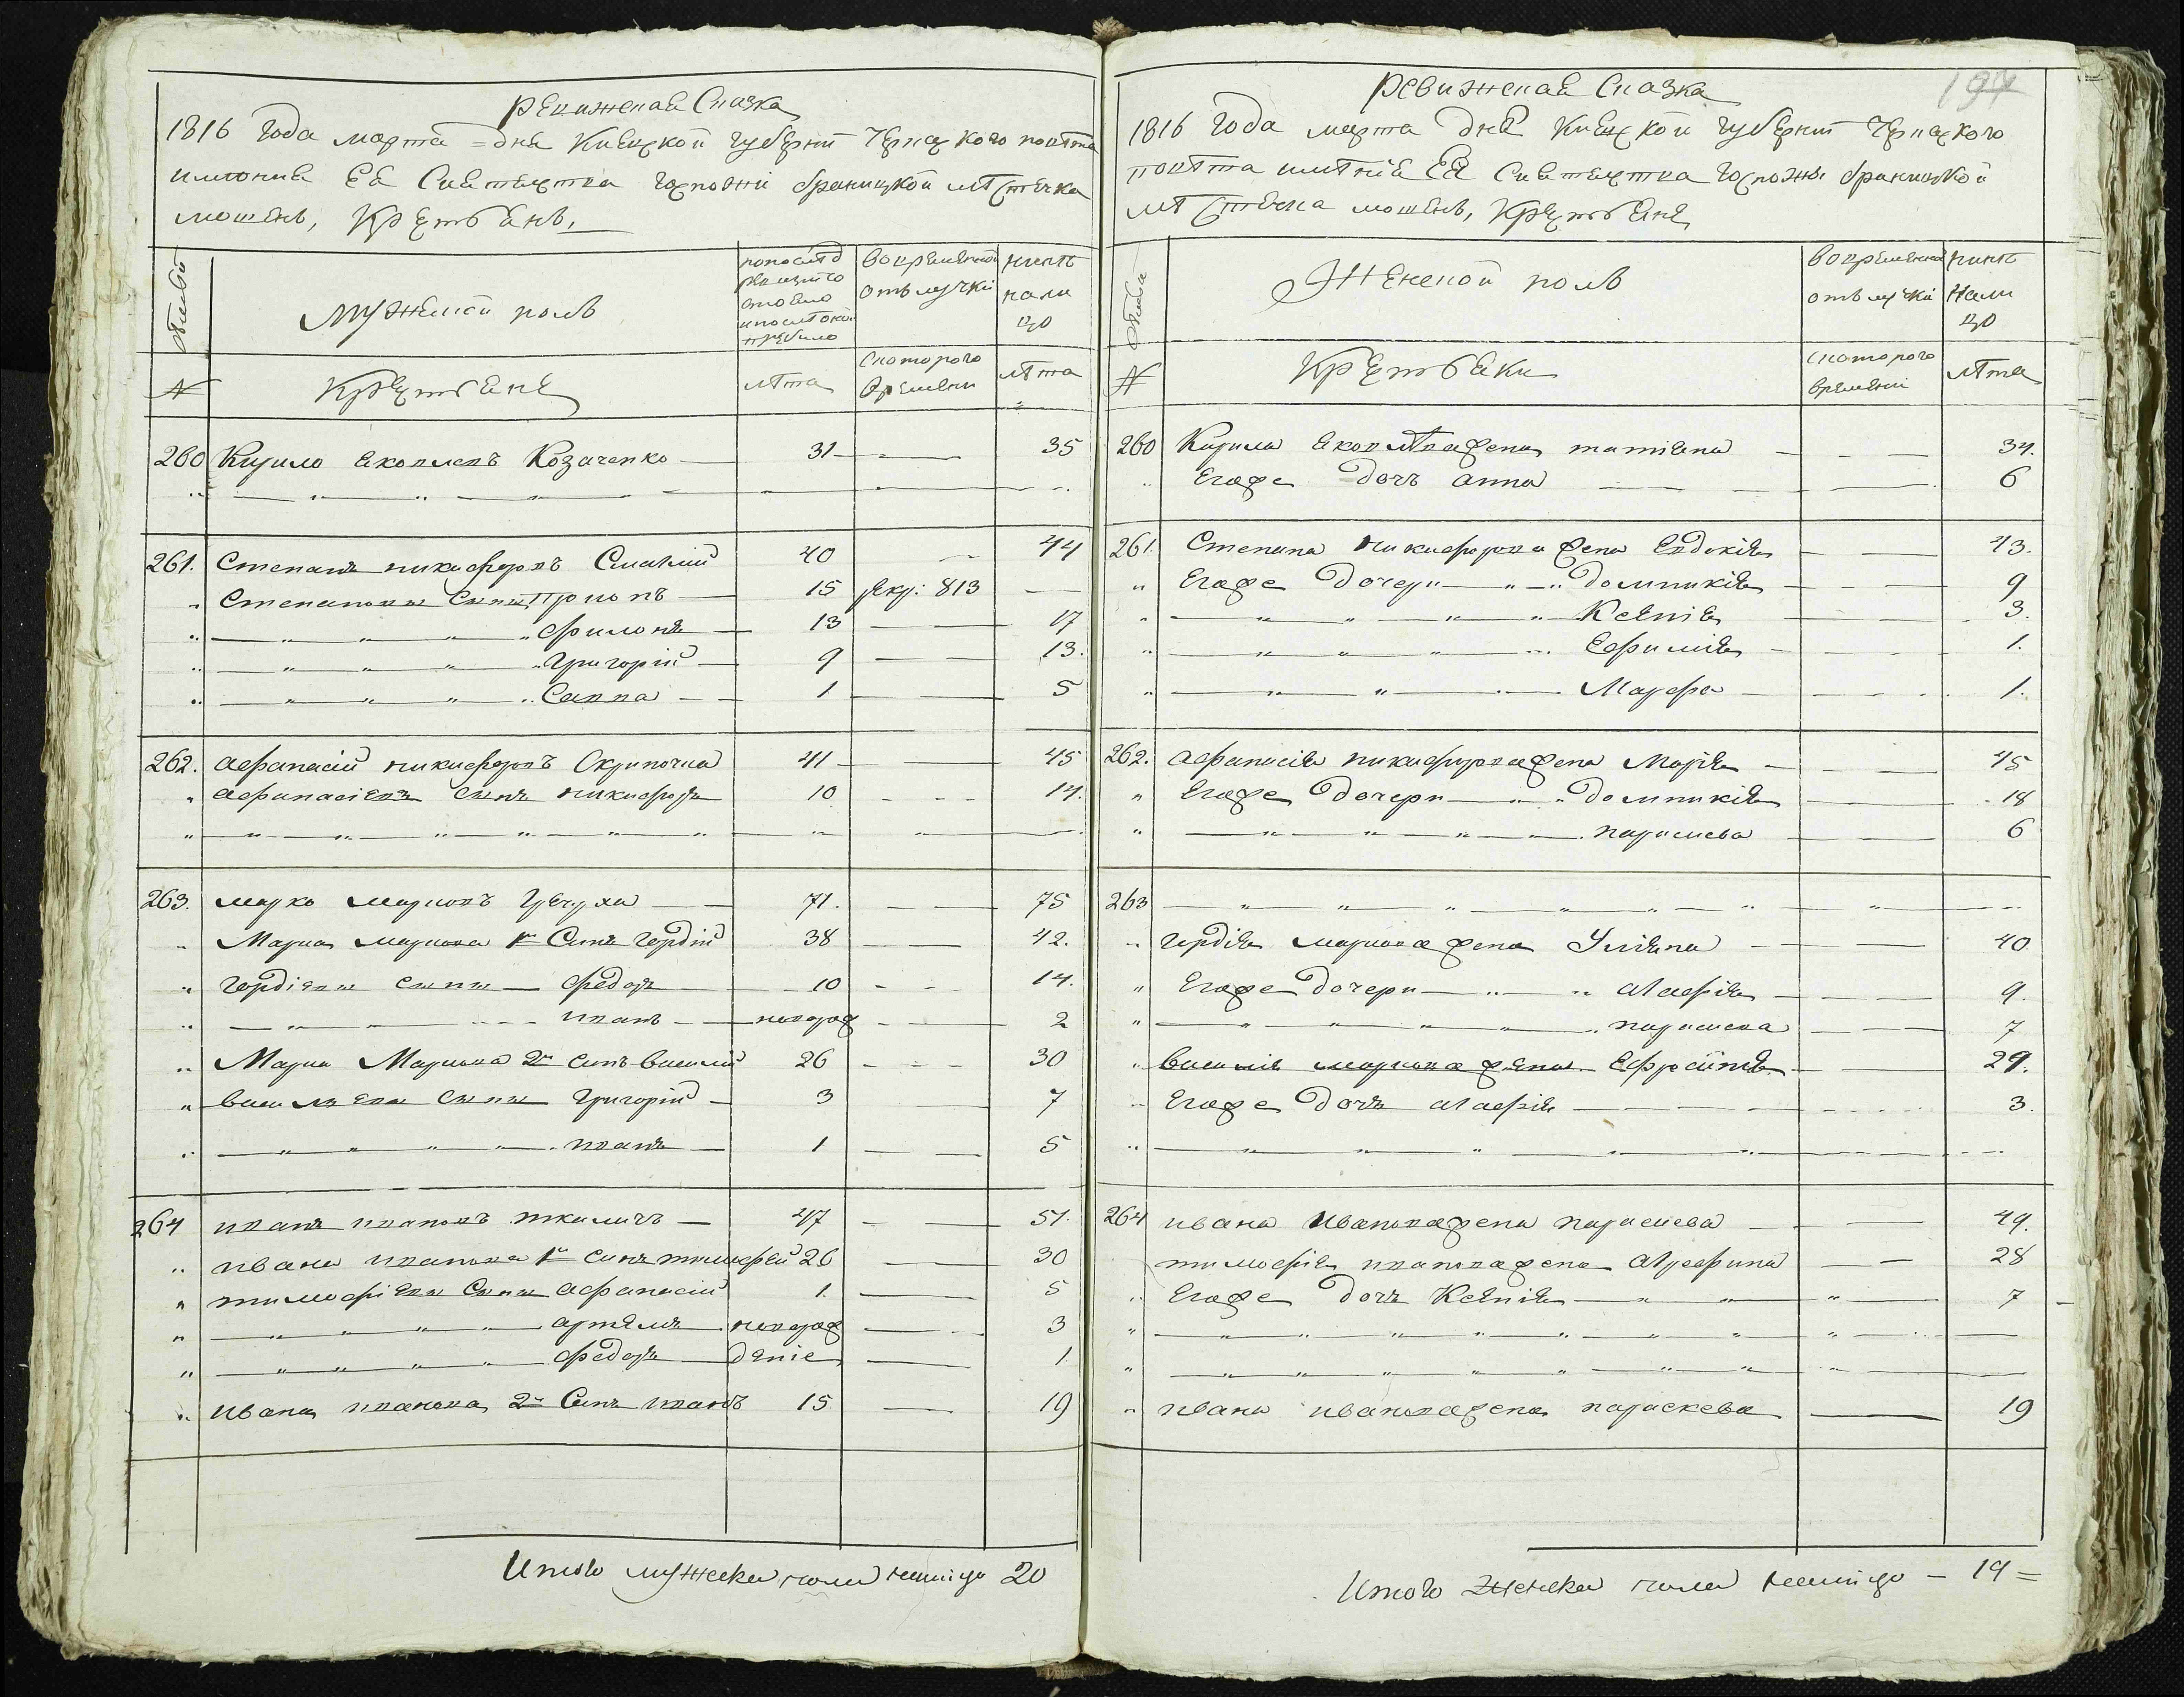 Ревижская Сказка
1816 Года марта = дня Киевской губернии Черкаского повѣта
имѣния Ея Сиятельства Госпожи браницкой мѣстечка
мошенъ, Крестьянъ.
мужеской полъ
Крестьяне
лѣта
вовременной отлучки
Скоторого времени
нынѣ налицо
лѣта
№
260 Кирило Яковлевъ Козаченко 31 — 35
261. Степанъ никифоровъ Смаклий 40 — 44
„ Степановы Сыны, Прионъ 15 рекр: 813 —
„ Филонъ 13 — 17
„ Григорій 9 — 13.
„ Савва 1 — 5
262. Афанасій никифоровъ Скрипочка 41 — 45
„ Афанасіевъ сынъ никифоръ 10 — 14.
263. марко марковъ 71. — 75
„ Марка маркова 1й Сынъ Гордій 38 — 42.
„ Гордіевы сыны — Федоръ 10 — 14.
„ иванъ неворож — 2
„ Марка Маркова 2й сынъ василій 26 — 30
„ васильевы сыны Григорій 3 — 7
„ иванъ 1 — 5
264 иванъ ивановъ ткаличъ — 47 — 51.
„ ивана иванова 1й сынъ тимофей 26 — 30
„ тимофіевы Сыны Афанасій 1. — 5
„ артемъ неворож — 3
„ Федоръ дение — 1
„ ивана иванова 2й Сынъ иванъ 15 — 19
Итого мужеска пола налицо 20
Ревижская Сказка
197
1816 Года марта дня Киевской губернии Черкаского
повѣта имѣнія Ея Сиятельства Госпожы браницкой
мѣстечка мошенъ, Крестьяне
Женской полъ
Крестьянки
вовременной отлучки
Скоторого времени
нынѣ налицо
лѣта
№
260 Кирила Яковлева жена татіяна — 34.
„ Егоже дочъ анна — 6
261. Степана никифорова жена Евдокія — 43.
„ Егоже дочери — „ — „ домникія — 9
„ Ксенія — 3.
„ Ефимія — 1.
„ Марфа — 1.
262. Афанасія никифорова жена Марія — 45
„ Егоже дочери — „ домникія — 18
„ параскева — 6
263
„ Гордія маркова жена Уліяна — 40
„ Егоже дочери — „ — „ Агафія — 9.
„ параскева — 7
„ василія маркова жена Ефросинія — 29.
„ Егоже дочъ Агафія — 3.
264 ивана иванова жена параскева — 49.
тимофія иванова жена Агрефина — 28
„ Егоже дочъ Ксенія — 7
„ ивана иванова жена параскева — 19
Итого Женска пола налицо — 19 =